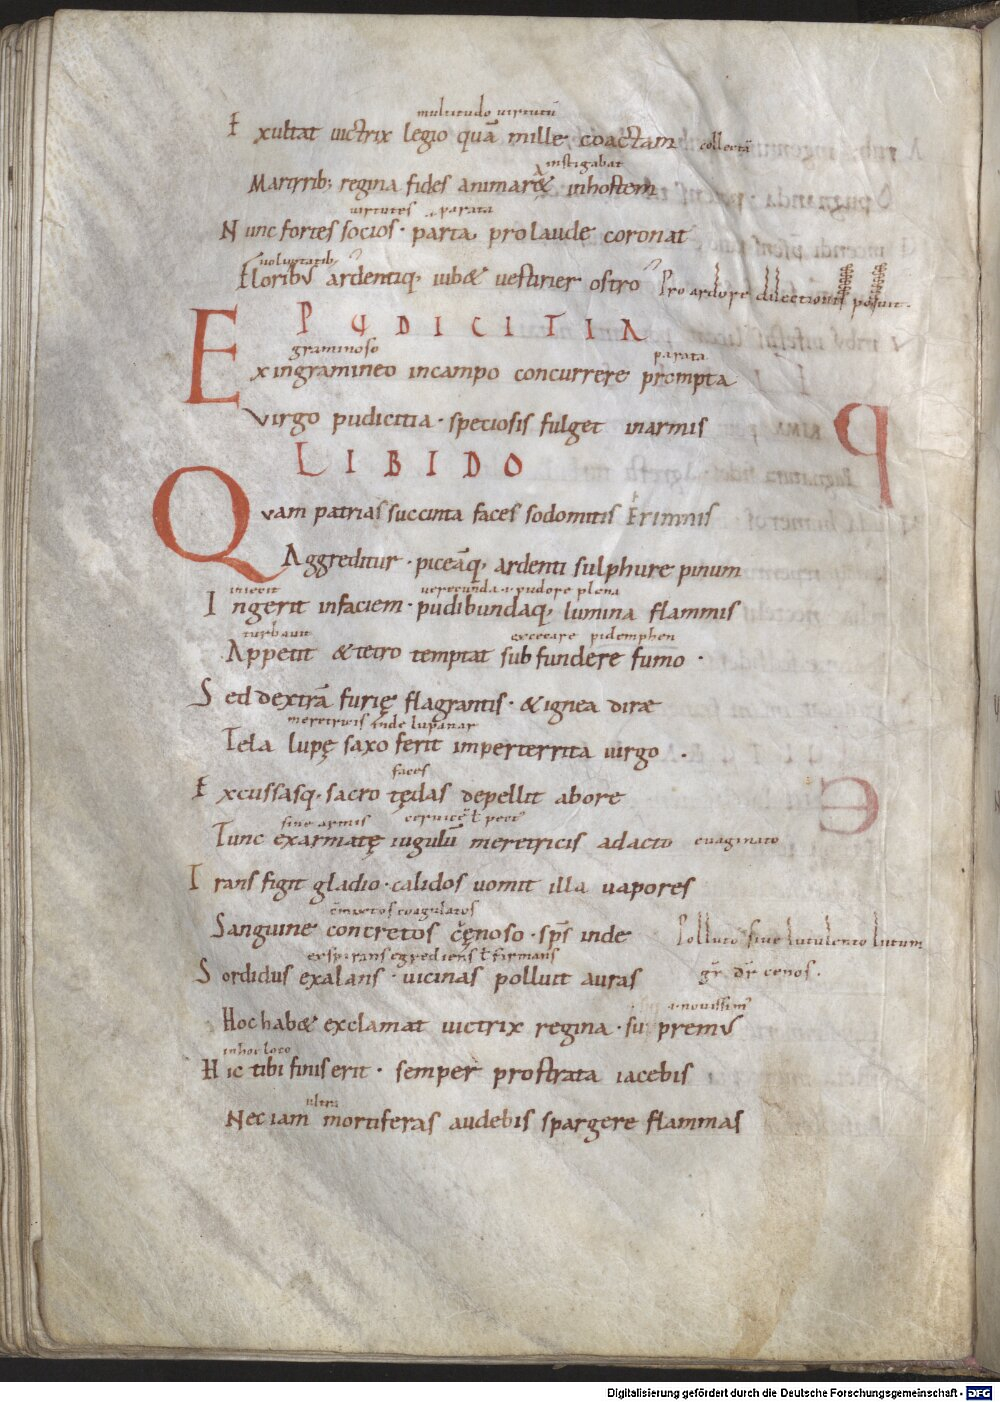 multitudo virtutū
Exultat uictrix legio quā mille coactam collectā
instigabat
Martirib; regina fides animarat& inhostem
virtutes .i. parata
Nunc fortes socios · parta prolaude coronat
voluptatib;
Floribus ardentiq; iub& uestirier ostro Pro ardore dilectionis posuit.
PUDICITIA
graminoso parata
Exingramineo incampo concurrere prompta
Virgo pudicitia · speciosis fulget inarmis
LIBIDO
Quam patrias succinta faces sodomitis Erinnis
Aggreditur · piceāq; ardenti sulphure pinum
iniecit verecunda .i. pudore plena
Ingerit infaciem · pudibundaq; lumina flammis
turbauit excecare
Appetit & tetro temptat subfundere fumo ·
Sed dextrā furię flagrantis · & ignea dirae
meretricis inde lupanar
Tela lupę saxo ferit imperterrita uirgo ·
faces
Excussasq; sacro tędas depellit abore
sine armis
Tunc exarmatę iugulū meretricis adacto euaginato
Transfigit gladio · calidos uomit illa uapores
coagulatos
Sanguine concretos cęnoso · sps inde Polluto siue lutulento lutum
exspirans egrediens ł firmans
Sordidus exalans · uicinas polluit auras gr̄ dr̄ cenos.
.i. nouissimus
Hoc hab& exclamat uictrix regina · supremus
inhoc loco
Hic tibi finis erit · semper prostrata iacebis
ultra
Nec iam mortiferas audebis spargere flammas
Digitalisierung gefördert durch die Deutsche Forschungsgemeinschaft - DFG